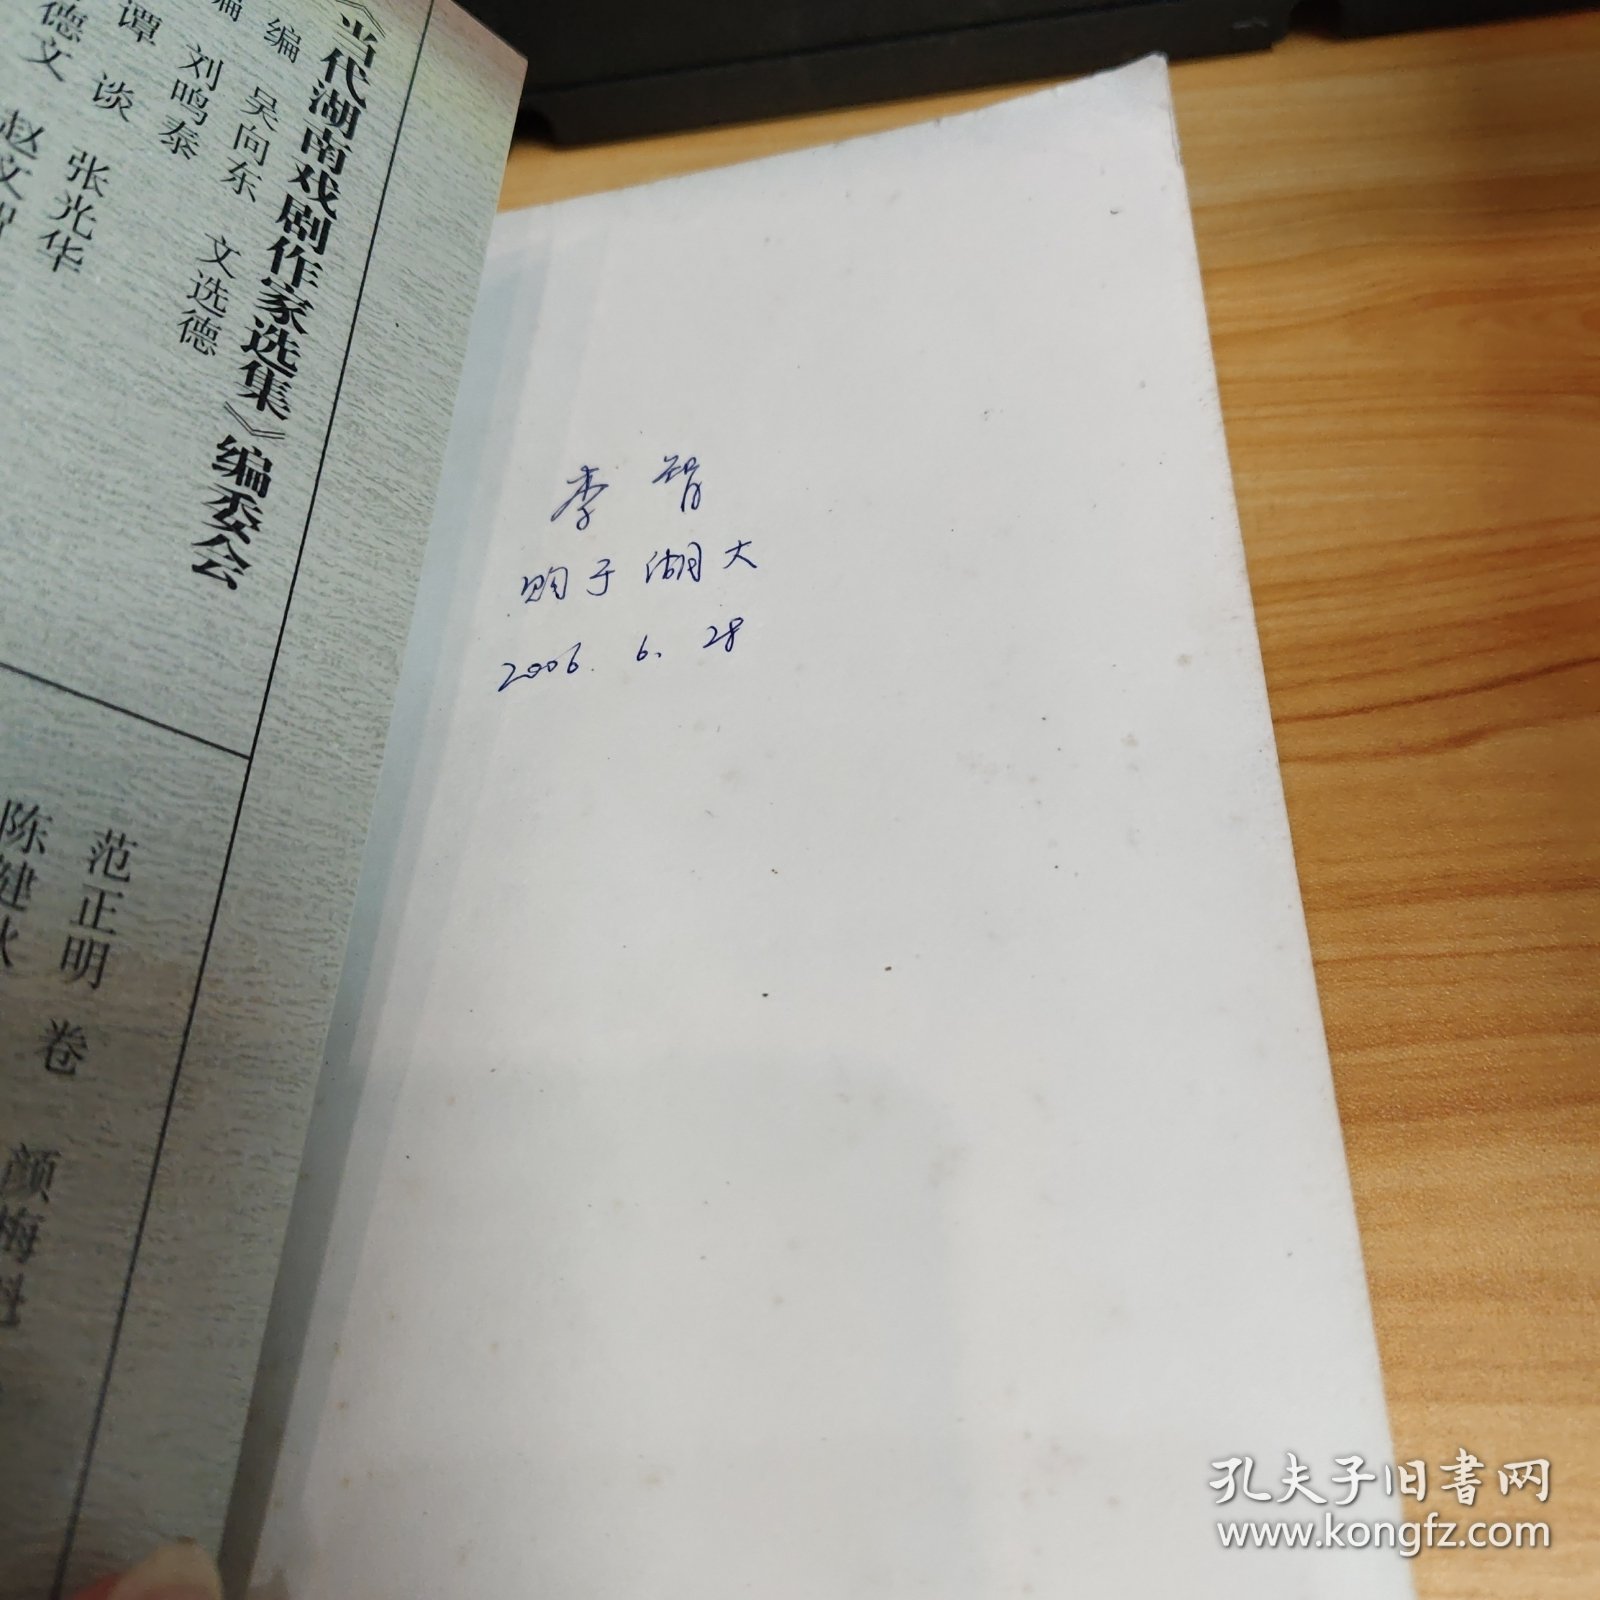 《当代湖南戏剧作家选集》编委会
编 吴向东 文选德
编 刘鸣泰
谭 谈 张光华
德文 赵文
范正明 卷 颜梅魁
陈健秋
李智
购于湖大
2006.6.28
孔夫子旧书网
www.kongfz.com